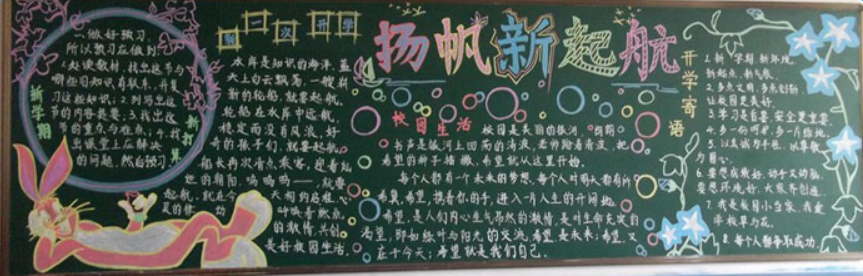 扬帆新起航
新一次开学
新学期
新打算
一、做好预习.
所以预习应做到
1.处读教材,找出这节与
哪些旧知识有联系,并复
习这些知识;2.列写出这
节的内容提要;3.找出这
节的重点与难点;4.找
出课堂上应解决
的问题,然后预习
水库是知识的海洋,蓝
天上白云飘荡,一艘崭
新的轮船,就要起航。
轮船在水库中远航,
稳定而没有风浪,好
奇的孩子们,就要起航。
船长再次清点乘客,迎着灿
烂的朝阳,呜呜呜——,就要
起航,就在今天
是好校园生活。
校园生活
校园是美丽的银河,
书声是银河上回荡的清波,老师踏着清波,把
希望的种子播撒,希望就从这里开始。
每个人都有一个未来的梦想,每个人对明天都有所
希冀,希望,携着你的手,进入一月人生的开间处
希望,是人们内心生气昂然的激情,是对生命充实的
渴望,即如绿叶与阳光的交流,希望,是未来;希望,又
在于今天;希望就是我们自己。
开学寄语
1.新学期,新环境,
新起点,新气象。
2.多点文明,多点创新
让校园更美好。
3.学习是首要,安全更重要。
4.多一份呵护,多一片绿地。
5.以真诚为半径,以尊敬
为圆心。
6.要想成绩好,动手又动脑,
要想环境好,大家齐创造。
7.我是校园小当家,我爱
学校草与花。
8.每个人都争取成功。